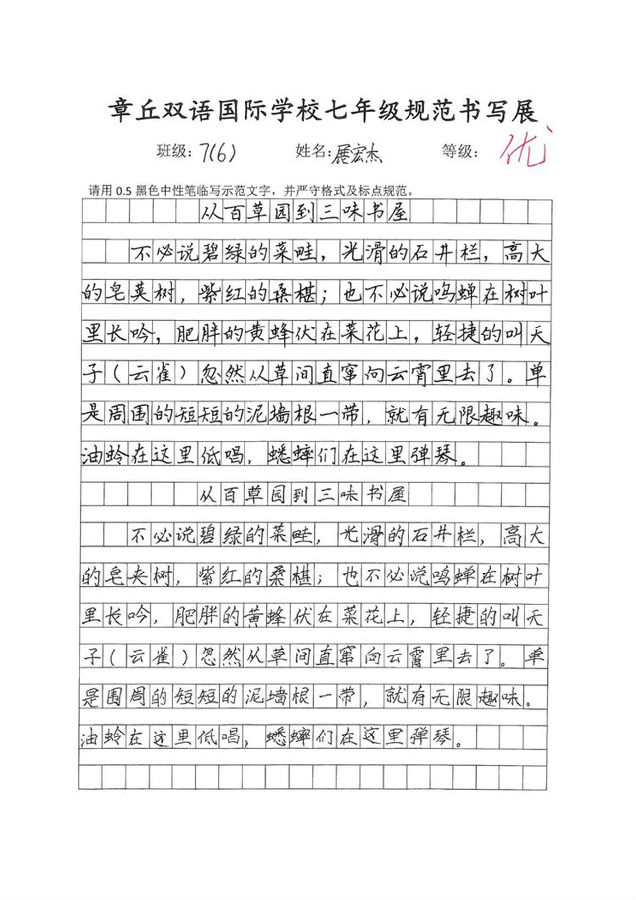 章丘双语国际学校七年级规范书写展
班级：7(6) 姓名：展宏杰 等级：优
请用 0.5 黑色中性笔临写示范文字，并严守格式及标点规范。
从百草园到三味书屋
不必说碧绿的菜畦，光滑的石井栏，高大
的皂荚树，紫红的桑椹；也不必说鸣蝉在树叶
里长吟，肥胖的黄蜂伏在菜花上，轻捷的叫天
子（云雀）忽然从草间直窜向云霄里去了。单
是周围的短短的泥墙根一带，就有无限趣味。
油蛉在这里低唱，蟋蟀们在这里弹琴。
从百草园到三味书屋
不必说碧绿的菜畦，光滑的石井栏，高大
的皂夹树，紫红的桑椹；也不必说鸣蝉在树叶
里长吟，肥胖的黄蜂伏在菜花上，轻捷的叫天
子（云雀）忽然从草间直窜向云霄里去了。单
是围周的短短的泥墙根一带，就有无限趣味。
油蛉在这里低唱，蟋蟀们在这里弹琴。